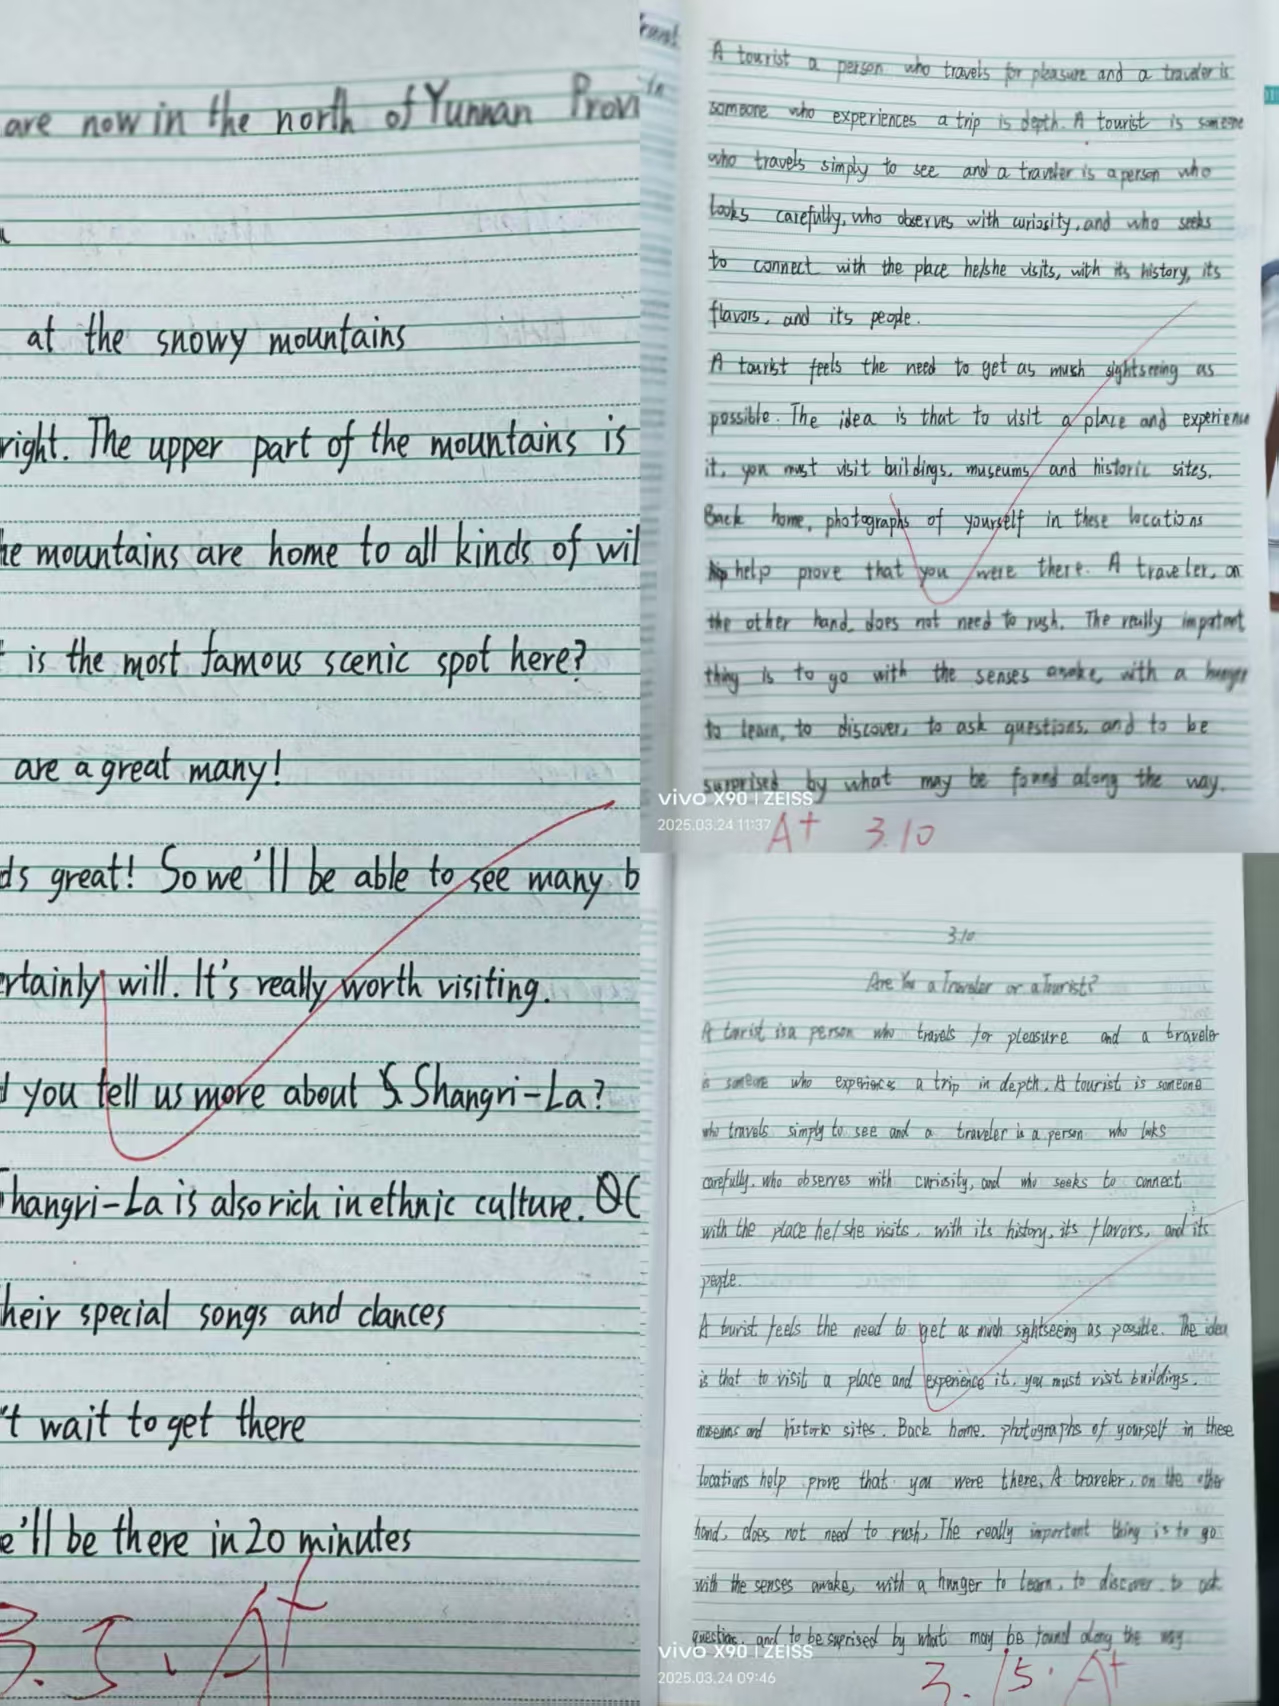 are now in the north of Yunnan Prov
at the snowy mountains
right. The upper part of the mountains is
he mountains are home to all kinds of wil
is the most famous scenic spot here?
are a great many!
ds great! So we'll be able to see many b
rtainly will. It's really worth visiting.
you tell us more about Shangri-La?
hangri-La is also rich in ethnic culture.
heir special songs and dances
't wait to get there
e'll be there in 20 minutes
3.5. A+
A tourist a person who travels for pleasure and a traveler is
someone who experiences a trip is depth. A tourist is someone
who travels simply to see and a traveler is a person who
looks carefully, who observes with curiosity, and who seeks
to connect with the place he/she visits, with its history, its
flavors, and its people.
A tourist feels the need to get as much sightseeing as
possible. The idea is that to visit a place and experience
it, you must visit buildings, museums and historic sites.
Back home, photographs of yourself in these locations
help prove that you were there. A traveler, on
the other hand, does not need to rush. The really impotant
thing is to go with the senses awake, with a hunger
to learn, to discover, to ask questions, and to be
surprised by what may be found along the way.
vivo X90 | ZEISS
2025.03.24 11:37
A+ 3.10
3.10
Are You a Traveler or a Tourist?
A torist is a person who travels for pleasure and a traveler
is someone who experiences a trip in depth. A tourist is someone
who travels simply to see and a traveler is a person who looks
carefully, who observes with curiosity, and who seeks to connect
with the place he/she visits, with its history, its flavors, and its
people.
A tourist feels the need to get as much sightseeing as possible. The idea
is that to visit a place and experience it, you must visit buildings,
museums and historic sites. Back home, photographs of yourself in these
locations help prove that you were there, A traveler, on the other
hand, does not need to rush, The really important thing is to go
with the senses awake, with a hunger to learn, to discover, to ask
question, and to be suprised by what may be found along the way
vivo X90 | ZEISS
2025.03.24 09:46
3.15. A+